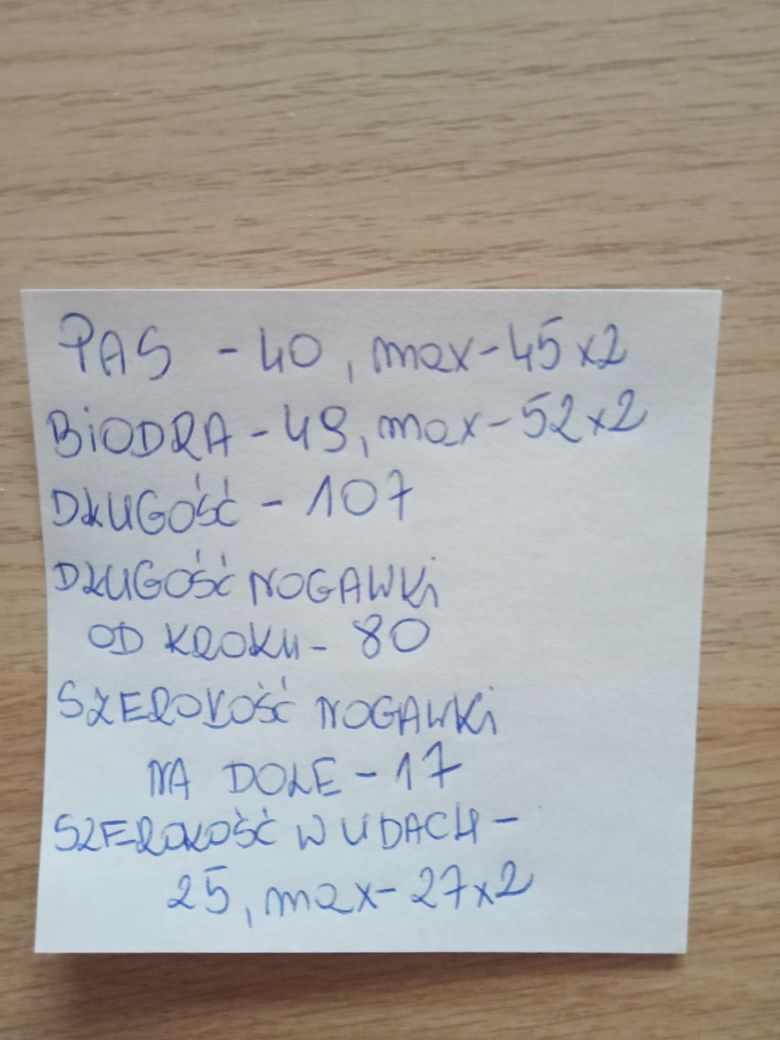 PAS - 40, max - 45x2
BiODRA - 49, max - 52x2
DŁUGOŚĆ - 107
DŁUGOŚĆ NOGAWKi
OD KROKU - 80
SZEROKOŚĆ NOGAWKi
NA DOLE - 17
SZEROKOŚĆ W UDACH -
25, max - 27x2